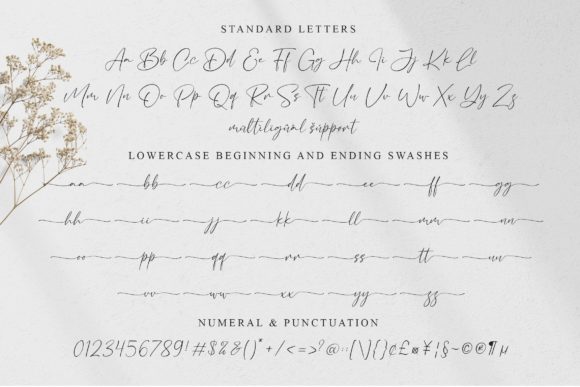 STANDARD LETTERS
Aa Bb Cc Dd Ee Ff Gg Hh Ii Jj Kk Ll
Mm Nn Oo Pp Qq Rr Ss Tt Uu Vv Ww Xx Yy Zz
multiligual support
LOWERCASE BEGINNING AND ENDING SWASHES
aa bb cc dd ee ff gg
hh ii jj kk ll mm nn
oo pp qq rr ss tt uu
vv ww xx yy zz
NUMERAL & PUNCTUATION
0123456789!#$%&()*+/<=>?@::[\]{}¢£¤¥¦§~©®¶µ